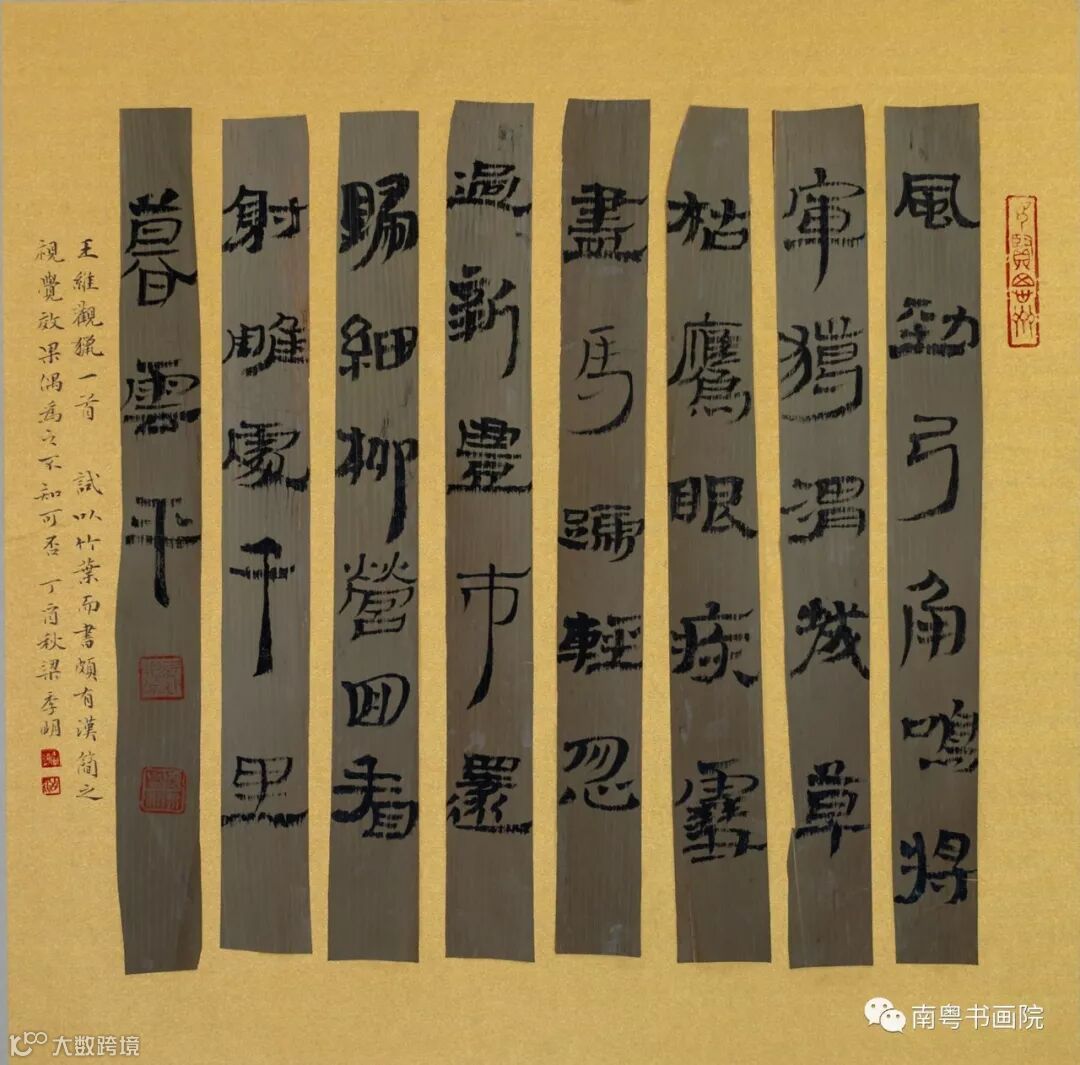 風勁弓角鳴將
軍獦渭城草
枯鷹眼疾雪
盡馬蹄輕忽
過新豐市還
歸細柳營回看
射雕處千里
暮雲平
王維觀獵一首 試以竹葉而書頗有漢簡之
視覺效果偶為之不知可否 丁酉秋梁季明
南粤书画院
大数跨境